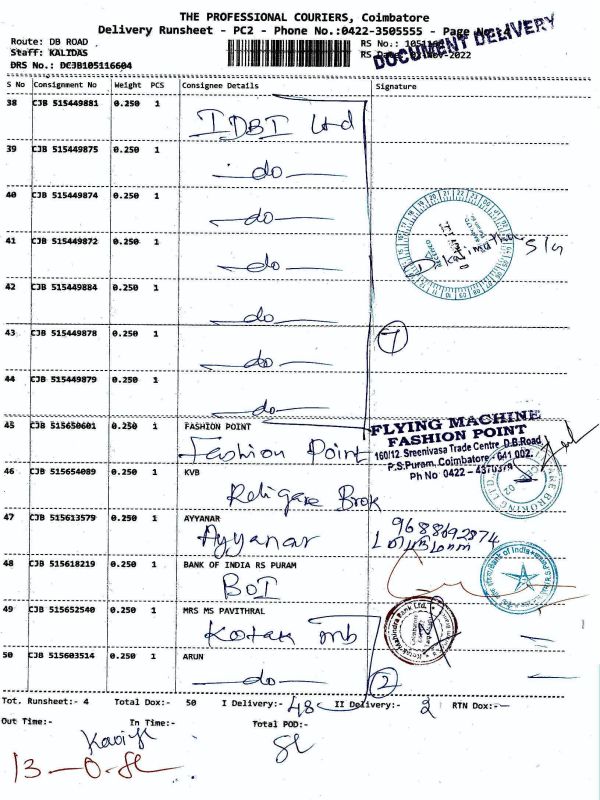 THE PROFESSIONAL COURIERS, Coimbatore
Delivery Runsheet - PC2 - Phone No.:0422-3505555 - Page
Route: DB ROAD
Staff: KALIDAS
DRS No.: DCJB105116604
RS No.:
DOCUMENT DELIVERY
S No Consignment No Weight PCS Consignee Details Signature
38 CJB 515449881 0.250 1 IDBI Ltd
39 CJB 515449875 0.250 1 do
40 CJB 515449874 0.250 1 do
41 CJB 515449872 0.250 1 do
42 CJB 515449884 0.250 1 do
43 CJB 515449878 0.250 1 do
7
44 CJB 515449879 0.250 1 do
45 CJB 515650601 0.250 1 FASHION POINT
Fashion Point
FLYING MACHINE
FASHION POINT
160/12. Sreenivasa Trade Centre D.B.Road
P.S.Puram, Coimbatore - 641 002.
Ph No 0422 -
46 CJB 515654089 0.250 1 KVB
Religare Brok
47 CJB 515613579 0.250 1 AYYANAR
Ayyanar
9688692874
48 CJB 515618219 0.250 1 BANK OF INDIA RS PURAM
BOI
49 CJB 515652540 0.250 1 MRS MS PAVITHRAL
Kotak mb
50 CJB 515603514 0.250 1 ARUN
do
2
Tot. Runsheet:- 4 Total Dox:- 50 I Delivery:- 48 II Delivery:- 2 RTN Dox:-
Out Time:- In Time:- Total POD:-